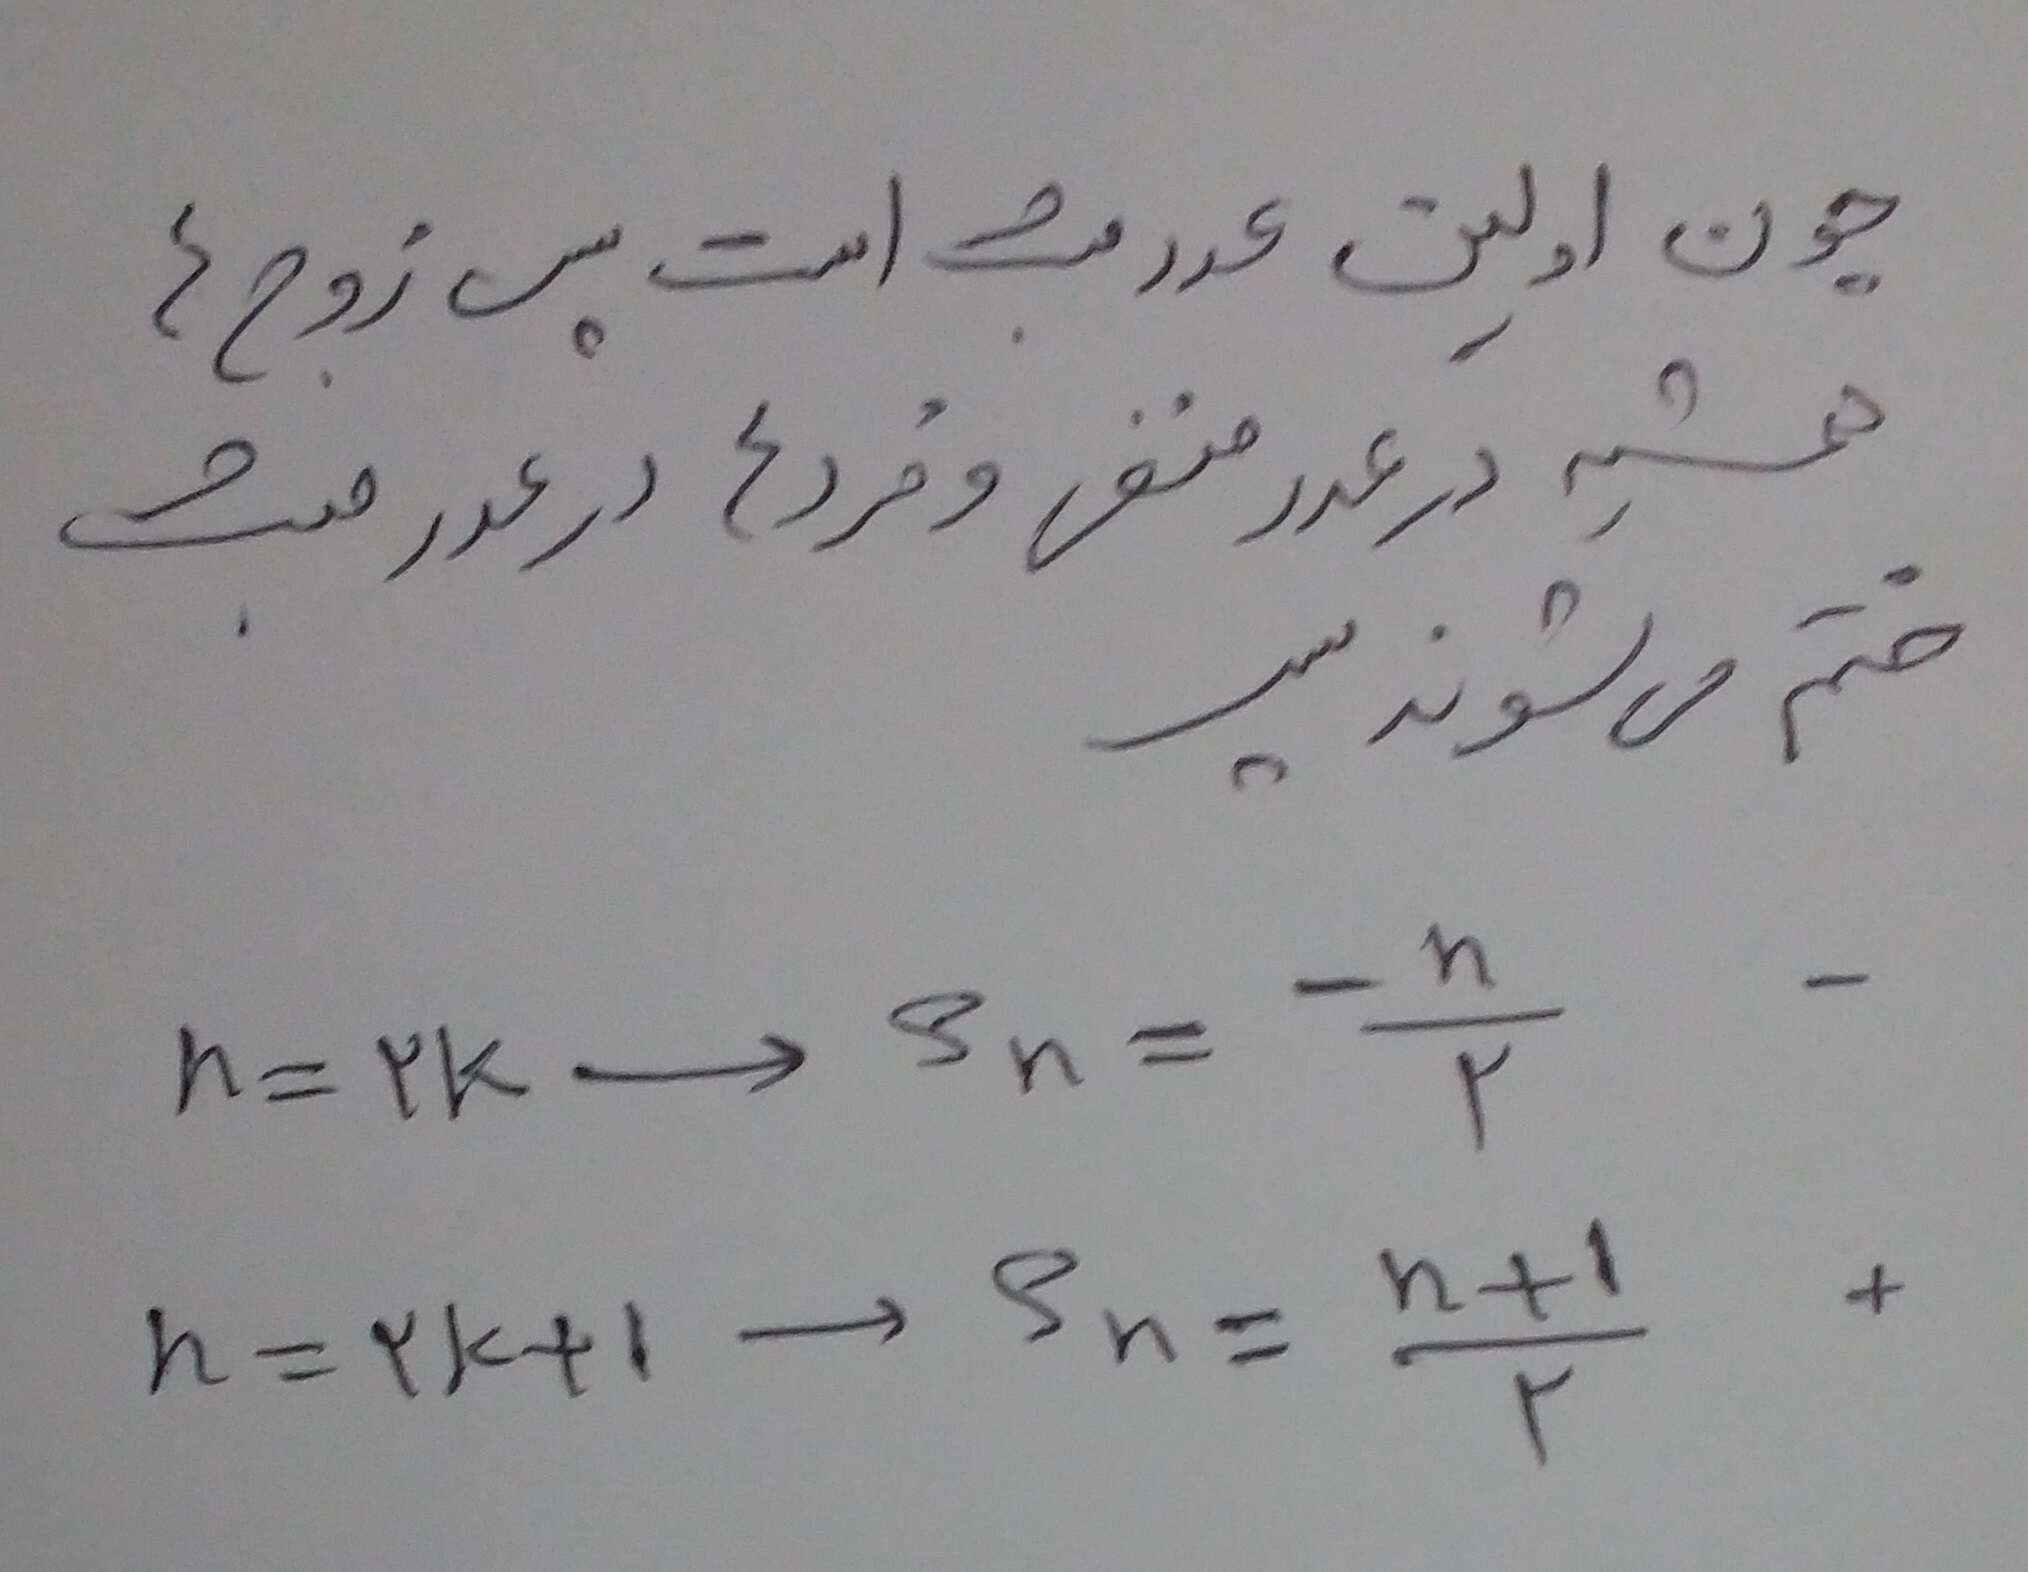 چون اولین عدد مثبت است پس زوج ها
همیشه در عدد منفی و فرد ها در عدد مثبت
ختم می شوند پس
n = ۲k → Sn = -n/۲ -
n = ۲k+۱ → Sn = n+۱/۲ +